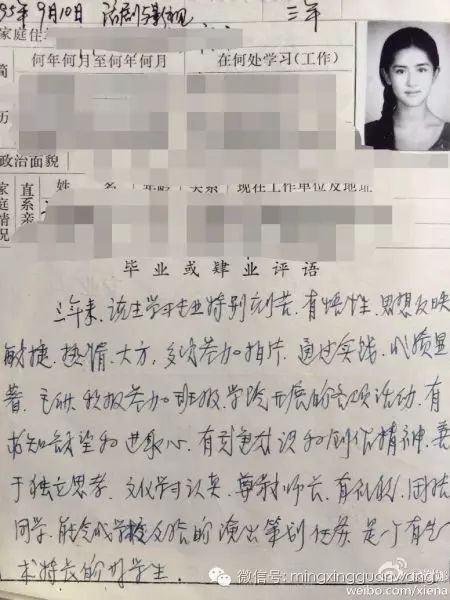 95年9月10日 话剧与影视 三年
家庭住
何年何月至何年何月 在何处学习(工作)
简
历
政治面貌
家庭情况 直系亲 姓 名 年龄 关系 现在工作单位及地址
毕业或肄业评语
三年来,该生学习专业特别刻苦,有悟性,思想反映
敏捷,热情,大方,多次参加拍片,通过实践,成绩显
著,主动,积极参加班级,学院开展的各项活动,有
求知欲望和进取心,有刻意意识和创作精神,善
于独立思考,文化学习认真,尊敬师长,有礼貌,团结
同学,能完成学校交给的演出策划任务,是一个有艺
术特长的好学生.
微信号:mingxingquanwang
weibo.com/xiena